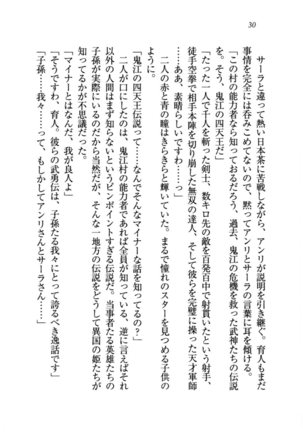 30
サーラと違って熱い日本茶に苦戦しながら、アンリが説明を引き継ぐ。育人もまだ
事情を完全には呑みこめてないので、黙ってアンリとサーラの言葉に耳を傾ける。
「この村の能力者なら知っておるだろう。過去、鬼江の危機を救った武神たちの伝説
を。そう、鬼江の四天王だ」
「たった一人で千人を斬った剣士、数キロ先の敵を百発百中で射貫いたという射手、
徒手空拳で相手本陣を切り崩した無双の達人、そして彼らを完璧に操った天才軍師
……ああ、素晴らしいですわ……っ」
二人の赤と青の瞳はきらきらと輝いていた。まるで憧れのスターを見つめる子供の
ように。
「鬼江の四天王伝説って……なんでそんなマイナーな話を知ってるの？」
二人が口にしたのは、鬼江村の能力者であれば全員が知っている、逆に言えばそれ
以外の人間はまず知らないというピンポイントすぎる伝説だった。当事者たる英雄たちの
子孫が実際にいるのだから当然だが、そんな一地方の伝説をどうして異国の姫たちが
知ってるかが不思議だった。
「マイナーとはなんだ、我が良人よ」
「そうですわ、育人。彼らの武勇伝は、子孫たる我々にとって誇るべき逸話です」
「子孫……我々……って、もしかしてアンリさんとサーラさん……」